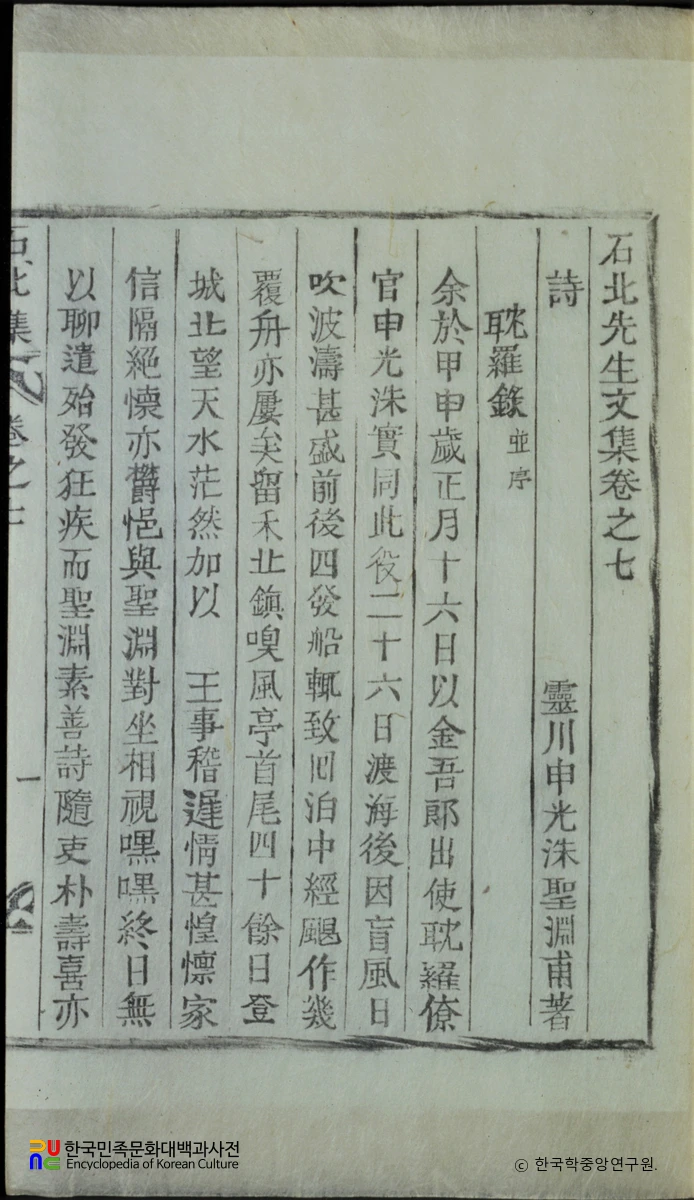 石北先生文集卷之七
詩 靈川申光洙聖淵甫著
耽羅錄 並序
余於甲申歲正月十六日以金吾郎出使耽羅僚
官申光洙實同此役二十六日渡海後因盲風日
吹波濤甚盛前後四發船輒致回泊中經颶作幾
覆舟亦屢矣留禾北鎮嗅風亭首尾四十餘日登
城北望天水茫然加以 王事稽遲情甚惶懍家
信隔絕懷亦欝悒與聖淵對坐相視嘿嘿終日無
以聊遣殆發狂疾而聖淵素善詩隨吏朴壽喜亦
石北集 卷之七 一
한국민족문화대백과사전
Encyclopedia of Korean Culture
ⓒ 한국학중앙연구원.